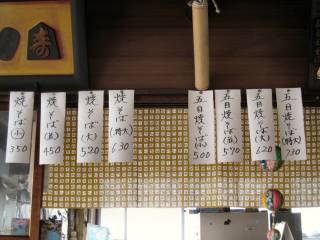 焼そば(小)350
焼そば(並)450
焼そば(大)520
焼そば(特大)630
五目焼そば(小)500
五目焼そば(並)570
五目焼そば(大)620
五目焼そば(特大)730
寿